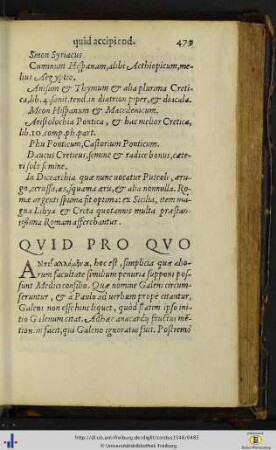 quid accipi cod. 479
Sinon Syriacus
Cuminum Hispanum, alibi Aethiopicum, me-
lius Aegyptio.
Anisum & Thymum & alia plurima Creti-
ca, lib. 4. sanit. tend. in diatrion piper, & diacala.
Meon Hispanum & Macedonicum.
Aristolochia Pontica, & hac melior Cretica,
lib. 10. comp. ph. part.
Phu Ponticum, Castorium Ponticum.
Daucus Creticus, semine & radice bonus, cæte-
ri solo semine.
In Dicæarchia quæ nunc vocatur Puteoli, æru-
go, cerussa, æs, squama æris, & alia nonnulla. Ro-
mæ argenti spuma fit optima: ex Sicilia, item ma-
gna Libya & Creta quotannis multa præstan-
tissima Romam afferebantur.
QVID PRO QVO
ΑΝτεμβαλλόμενα, hoc est, simplicia quæ alio-
rum facultate similium penuria supponi pos-
sunt Medici consilio. Quæ nomine Galeni circum-
feruntur, & à Paulo ad verbum prope citantur.
Galeni non esse hinc liquet, quòd statim ipso ini-
tio Galenum citat. Adhæc anacardij fructus mē-
tionem facit, qui Galeno ignoratus fuit. Postremò
http://dl.ub.uni-freiburg.de/diglit/cordus1548/0483
© Universitätsbibliothek Freiburg